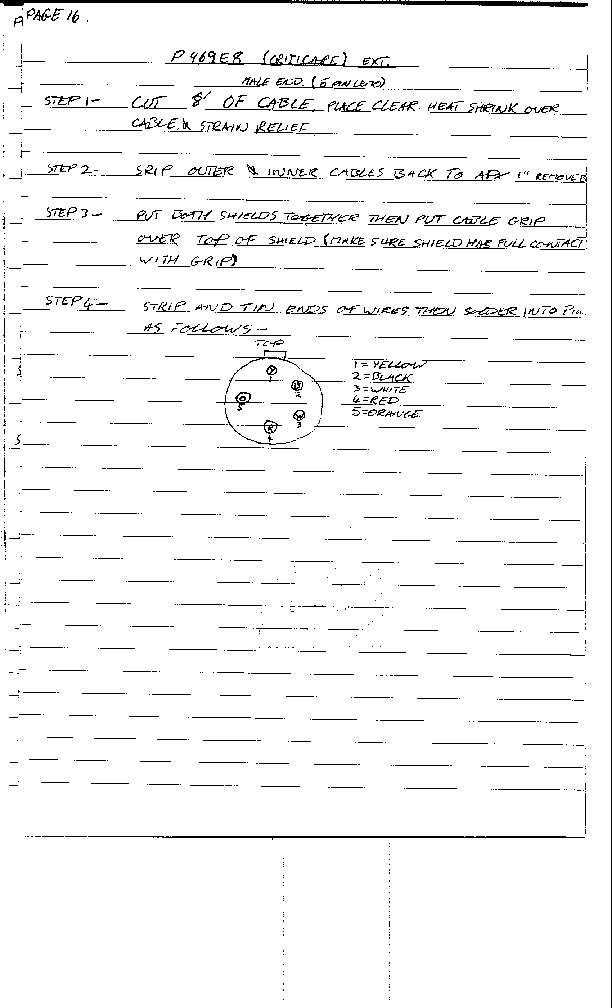 PAGE 16.
P469ER (CRITICARE) EXT.
MALE END. (5 PIN LEMO)
STEP 1- CUT 8' OF CABLE, PLACE CLEAR HEAT SHRINK OVER
CABLE & STRAIN RELIEF
STEP 2- SRIP OUTER & INNER CABLES BACK TO 1" REMOVED
STEP 3- PUT BOTH SHIELDS TOGETHER THEN PUT CABLE GRIP
OVER TOP OF SHIELD (MAKE SURE SHIELD HAS FULL CONTACT
WITH GRIP)
STEP 4- STRIP AND TIN ENDS OF WIRES THEN SOLDER INTO PIN
AS FOLLOWS-
TOP
1=YELLOW
2=BLACK
3=WHITE
4=RED
5=ORANGE
Y
1
B
2
O
5
W
3
R
4